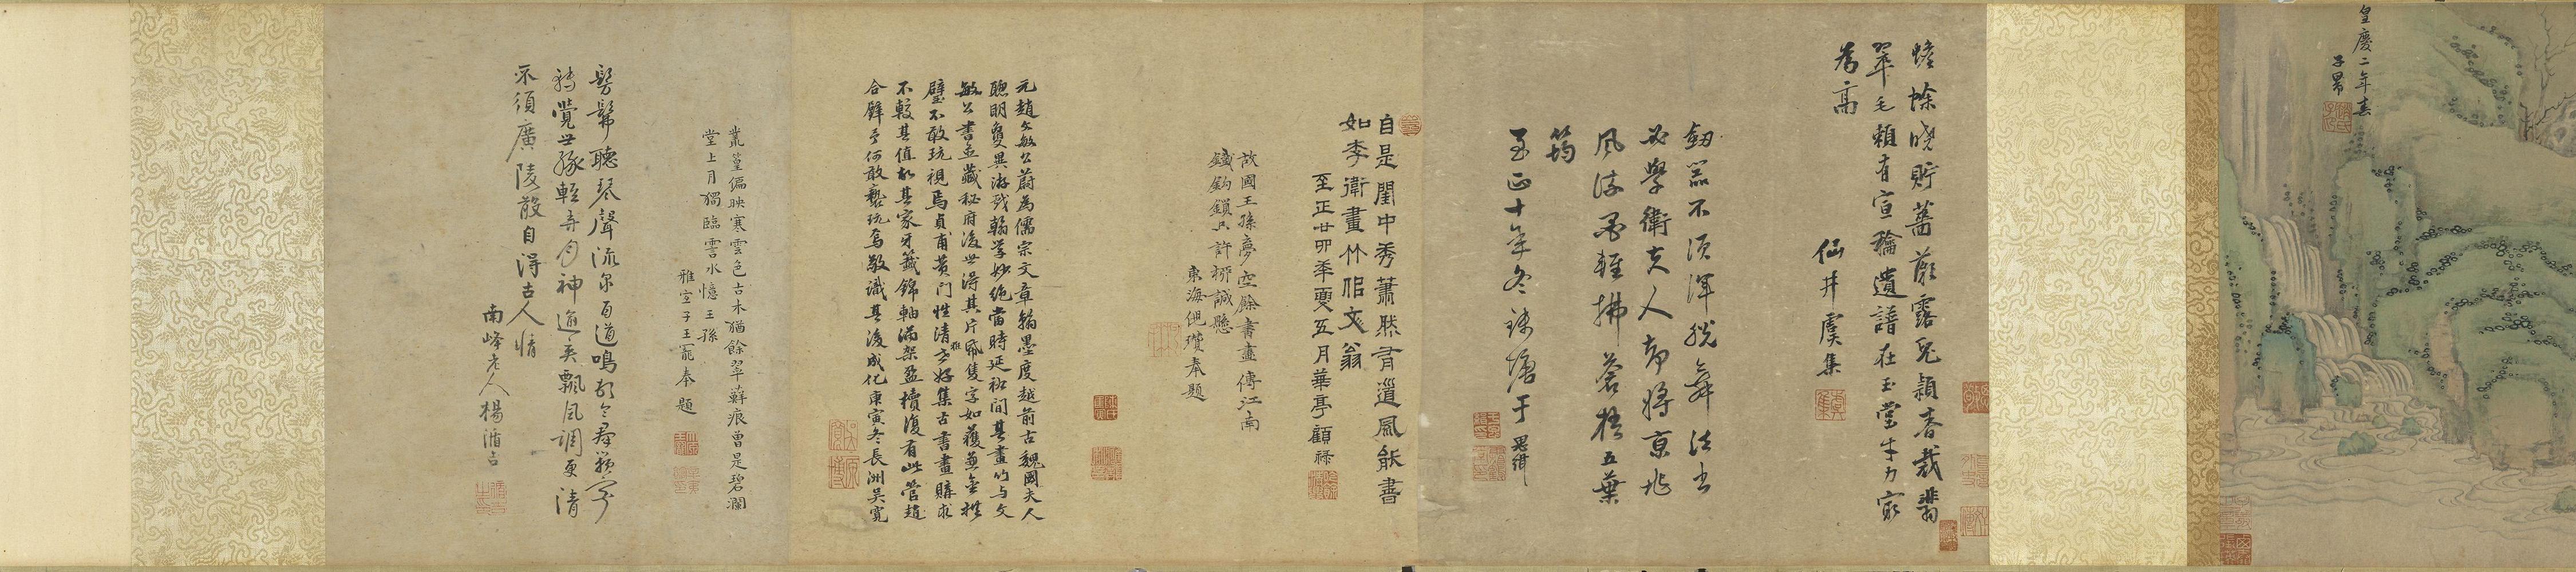 皇慶二年春
子昂
蟾蜍曉貯薔薇露兔穎香裁翡
翠毛賴有宣

遺譜在玉堂才力家
為高
仙井虞集
劍器不須渾脫舞法書
必學衛夫人却將京兆
風流筆輕拂蒼梧五葉
筠
至正十年冬錢塘于
自是閨中秀蕭然有遺風能書
如李衛畫竹作文翁
至正廿四年夏五月華亭顧祿
故國王孫夢空餘書畫傳江南
鐵鈎鎖只許穆誠懸
東海倪瓚奉題
元趙文敏公蔚為儒宗文章翰墨度越前古魏國夫人
聰明敻異游戲翰學妙絕當時延祐間其畫竹與文
敏公書並藏秘府後世得其片紙隻字如獲兼金拱
璧不敢玩視焉貞甫黃門性清雅好集古書畫購求
不較其值故其家牙籤錦軸滿架盈櫝復有此管趙
合璧予何敢褻玩焉敬識其後成化庚寅冬長洲吳寬
叢篁偏映寒雲色古木猶餘翠蘚痕曾是碧瀾
堂上月獨臨霅水憶王孫
雅宜子王寵奉題
髣髴聽琴聲流泉百道鳴
轉覺世緣輕弄月神遊遠飄風調更清
不須廣陵散自得古人情
南峰老人楊循吉